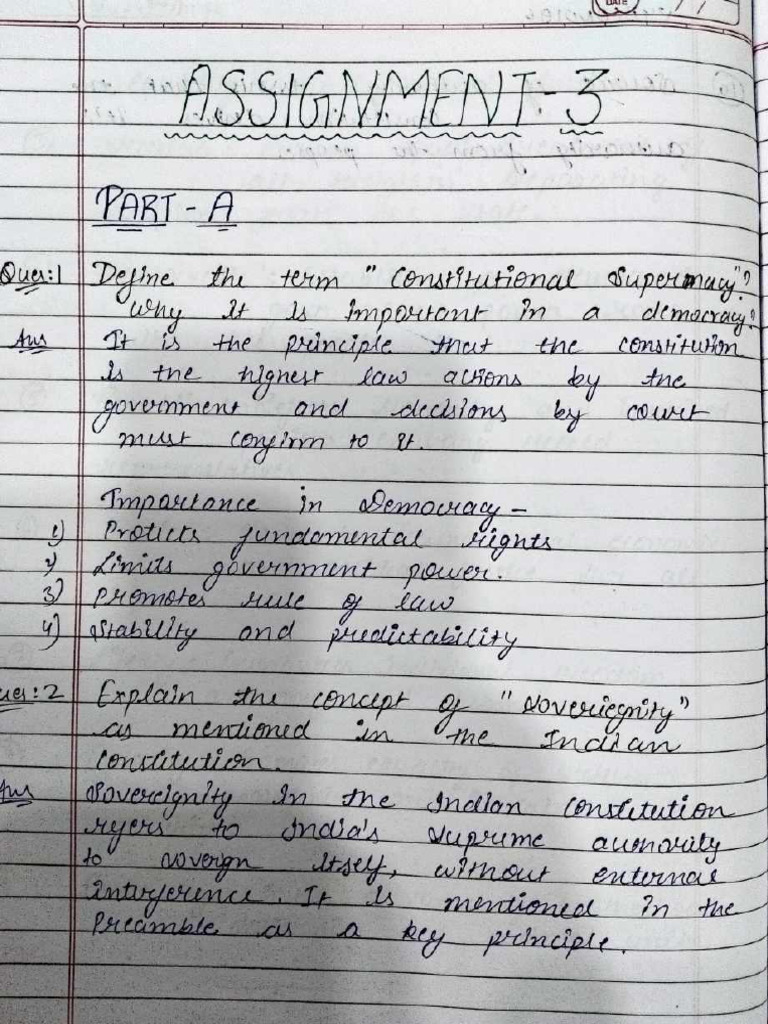 DATE
ASSIGNMENT-3
PART-A
Ques:1 Define the term "Constitutional Supermacy"?
Why it is important in a democracy?
Ans It is the principle that the constitution
is the highest law actions by the
government and decisions by court
must confirm to it.
Importance in Democracy -
1) Protects fundamental rights
2) Limits government power.
3) Promotes rule of law
4) Stability and predictability
ues:2 Explain the concept of "Soveriegnity"
as mentioned in the Indian
Constitution.
Ans Sovereignity in the Indian Constitution
refers to India's supreme authority
to govern itself, without external
interference. It is mentioned in the
Preamble as a key principle.